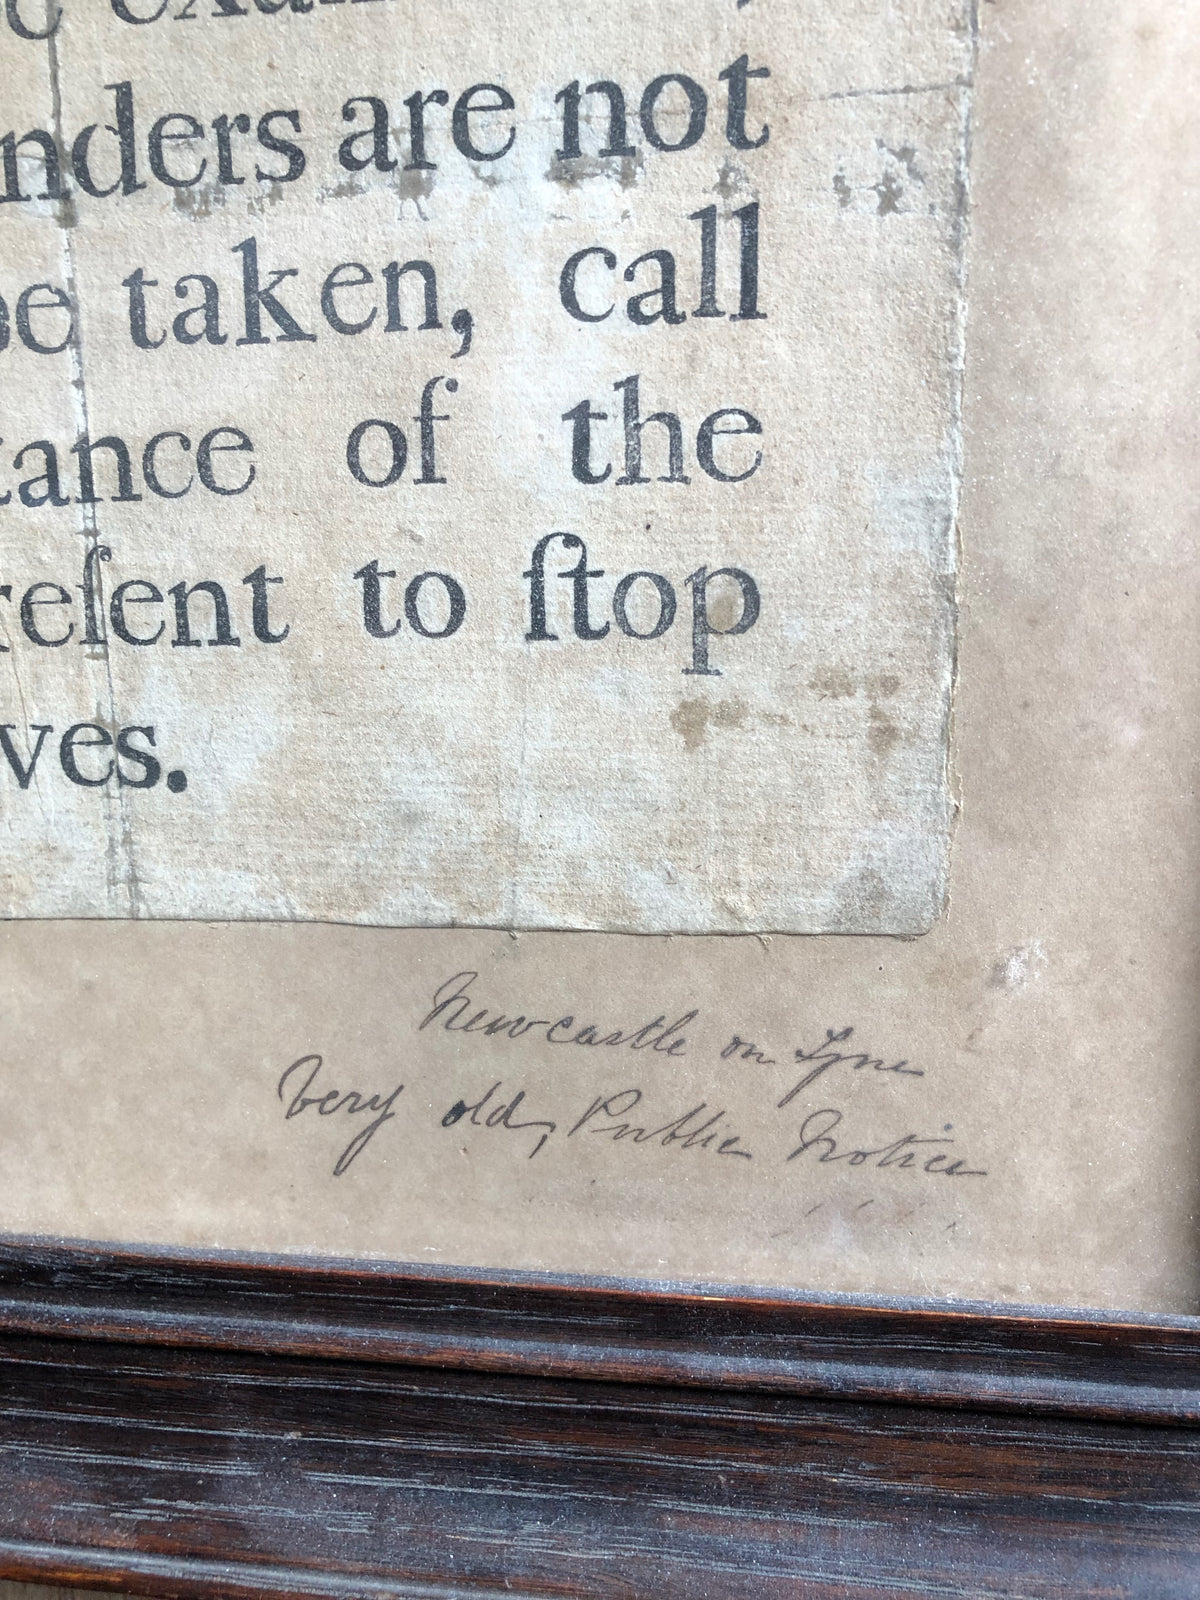 nders are not
be taken, call
tance of the
reſent to ſtop
ves.
Newcastle on Tyne
Very old, Public Notice